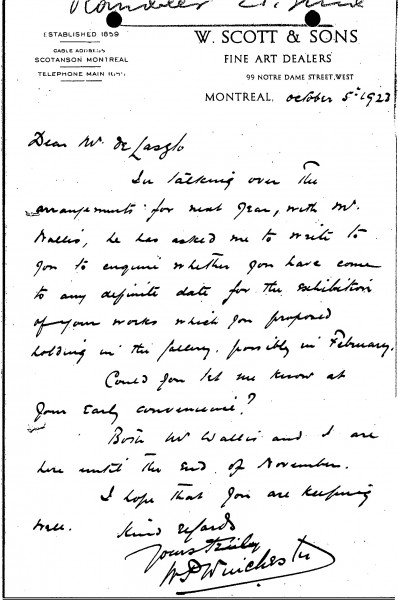 ESTABLISHED 1859
CABLE ADDRESS
SCOTANSON MONTREAL
TELEPHONE MAIN
W. SCOTT & SONS
FINE ART DEALERS
99 NOTRE DAME STREET, WEST
MONTREAL, October 5th 1923
Dear Mr. de Laszlo
In talking over the
arrangements for next year, with Mr.
Wallis, he has asked me to write to
you to enquire whether you have come
to any definite date for the exhibition
of your works which you proposed
holding in the gallery, possibly in February.
Could you let me know at
your Early convenience?
Both Mr Wallis and I are
here until the End of November.
I hope that you are keeping
well. Kind regards
Yours truly
Winchester